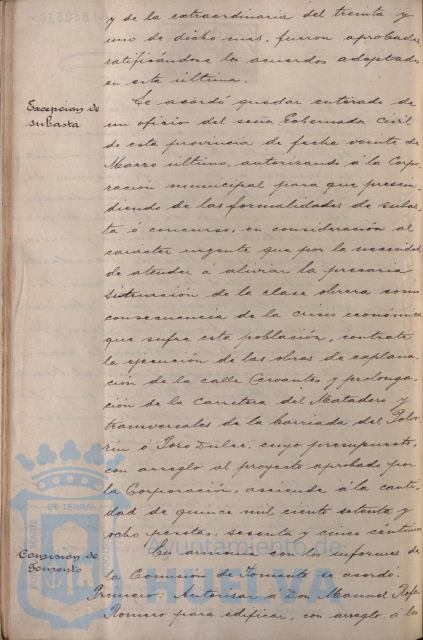 y de la extraordinaria del treinta y
uno de dicho mes, fueron aprobadas
ratificándose los acuerdos adoptados
en esta última.
Excepcion de
subasta
Se acordó quedar enterado de
un oficio del señor Gobernador Civil
de esta provincia de fecha veinte de
Marzo último, autorizando á la Corpo-
ración municipal para que prescin-
diendo de las formalidades de subas-
ta ó concurso, en consideración al
carácter urgente que por la necesidad
de atender á aliviar la precaria
situación de la clase obrera como
consecuencia de la crisis económica
que sufre esta población, contrate
la ejecución de las obras de explana-
ción de la calle Cervantes y prolonga-
ción de la Carretera del Matadero y
transversales de la barriada del Polvo-
rin ó Toro Dulce, cuyo presupuesto,
con arreglo al proyecto aprobado por
la Corporación, asciende á la canti-
dad de quince mil ciento setenta y
ocho pesetas, sesenta y cinco céntimos
Comisión de
Fomento
En armonía con los informes de
la Comisión de Fomento se acordó:
Primero: Autorizar á Don Manuel
Romero para edificar, con arreglo á los
ET TERRÆ
Ayuntamiento de
HUELVA